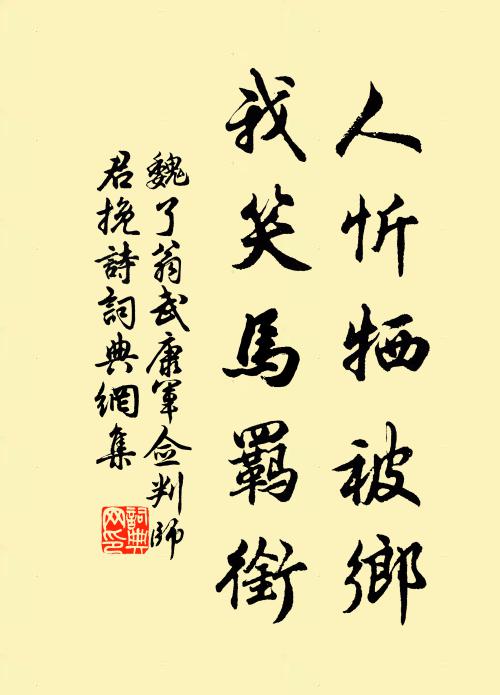 人忻牺被鄉
我笑馬羈銜
魏了翁武康軍佥判師
君挽詩詞典網集
詞典网印